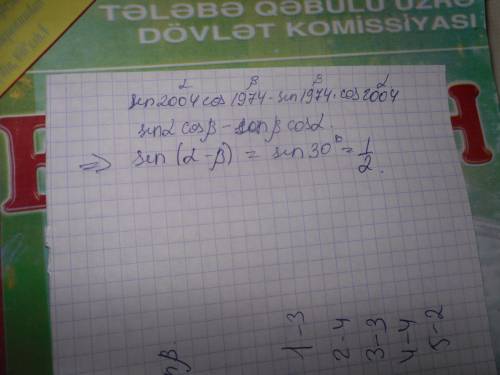 TƏLƏBƏ QƏBULU ÜZRƏ
DÖVLƏT KOMİSSİYASI
α β β α
sin2004 cos1974 - sin1974 · cos2004
sinα cosβ - sinβ cosα.
⇒ sin (α-β) = sin30° = 1/2.
1-3
2-4
3-3
4-4
5-2